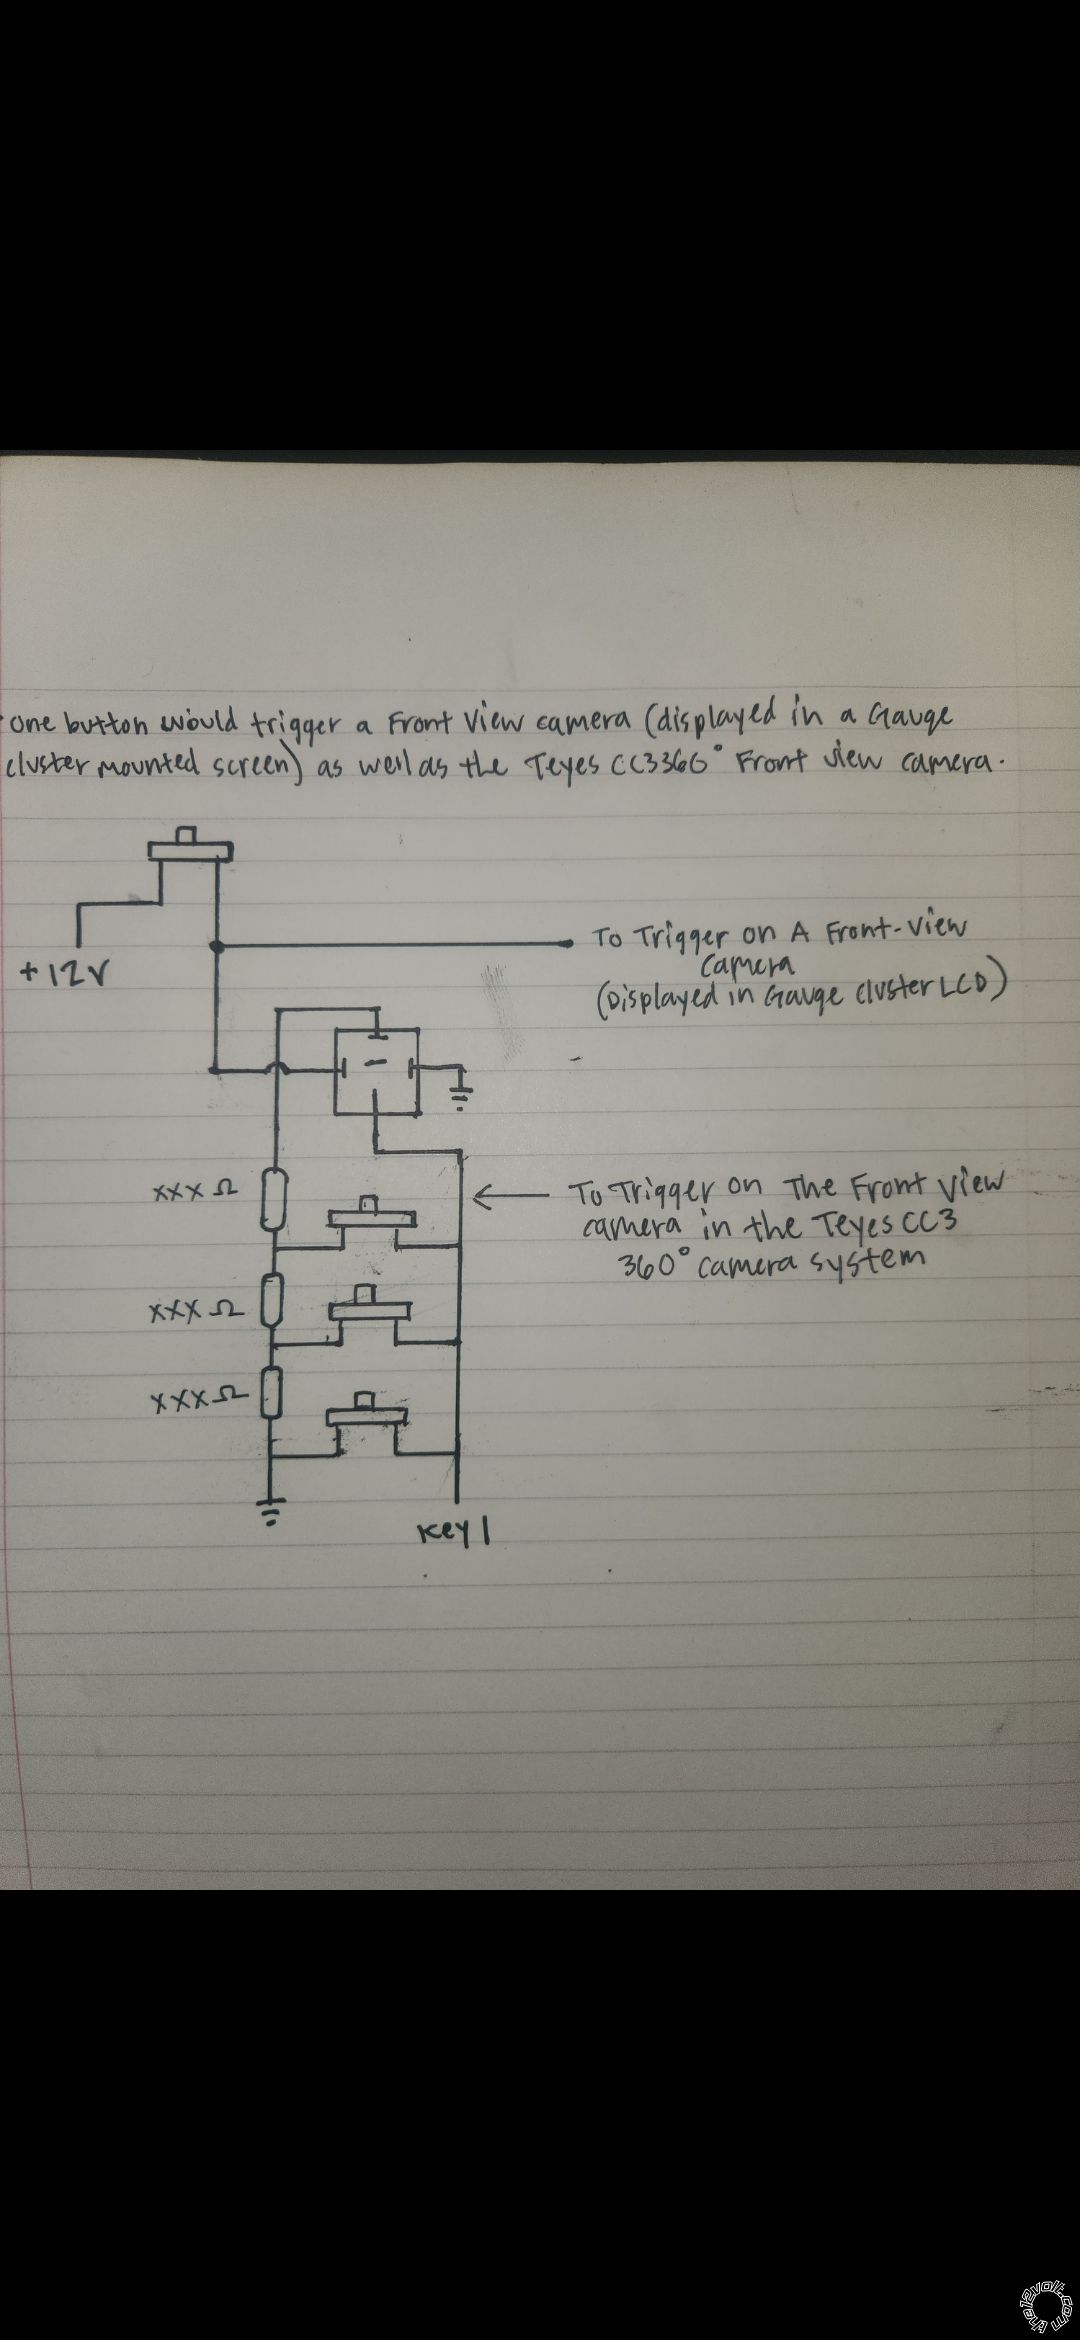 one button would trigger a Front View camera (displayed in a Gauge
cluster mounted screen) as well as the Teyes CC3360° Front view camera.
+12V
To Trigger on A Front-View
Camera
(Displayed in Gauge Cluster LCD)
xxx Ω
To Trigger on The Front View
camera in the Teyes CC3
360° camera system
xxx Ω
xxx Ω
Key 1
the12volt.com